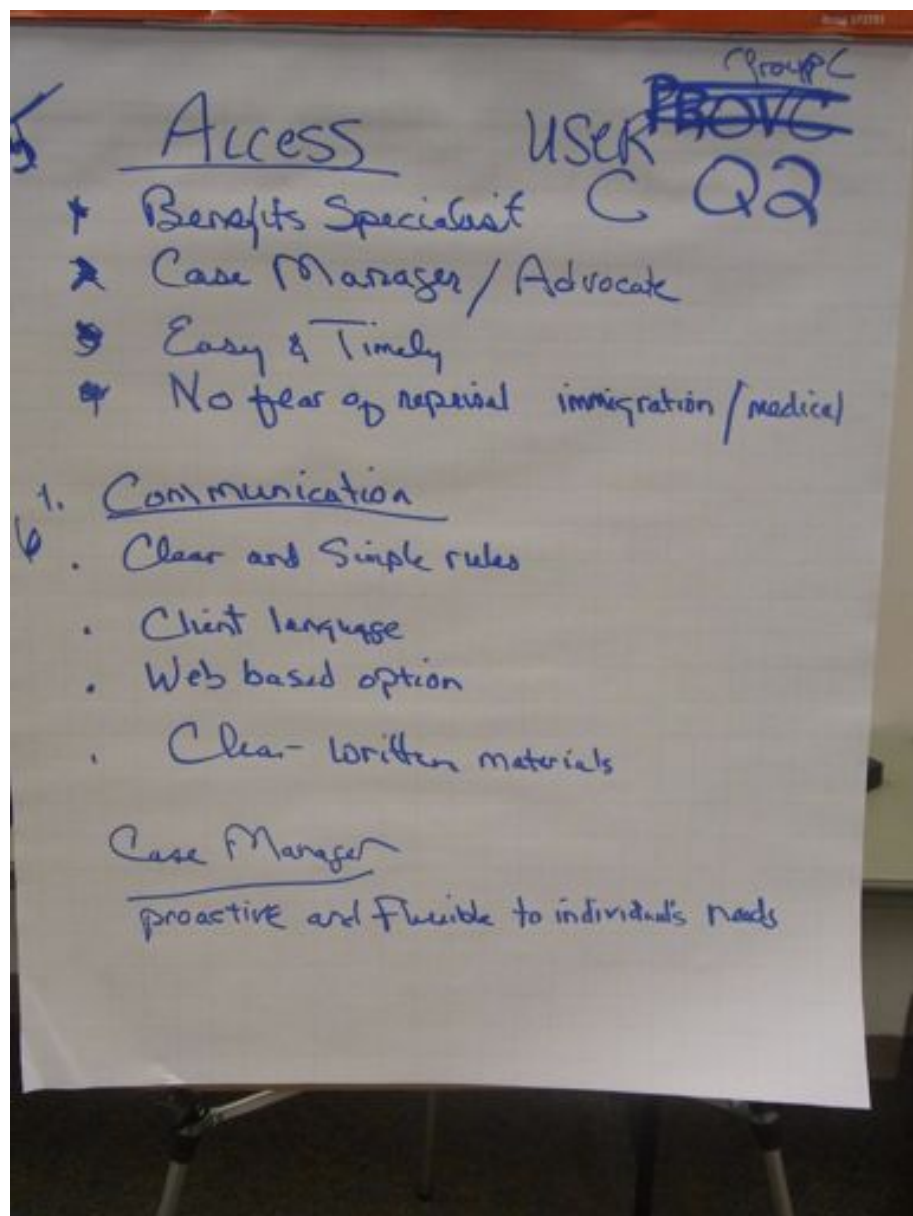 Group C
5 Access USER
C Q2
Benefits Specialist
Case Manager / Advocate
Easy & Timely
No fear of reprisal immigration / medical
1. Communication
6 . Clear and Simple rules
. Client language
. Web based option
. Clear written materials
Case Manager
proactive and Flexible to individuals needs